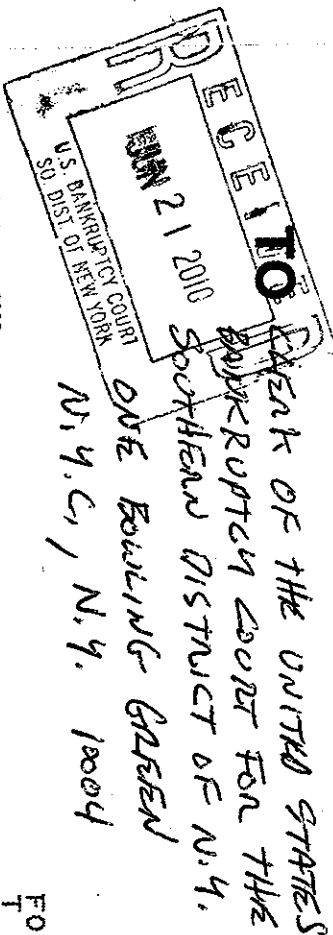 RECEIVED
JUN 21 2010
U.S. BANKRUPTCY COURT
SO. DIST. OF NEW YORK
TO
CLERK OF THE UNITED STATES
BANKRUPTCY COURT FOR THE
SOUTHERN DISTRICT OF N.Y.
ONE BOWLING GREEN
N.Y.C., N.Y. 10004
FO
T